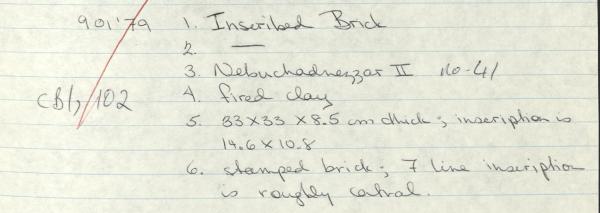 901'79 1. Inscribed Brick
2. —
3. Nebuchadnezzar II no-41
CBI, 102 4. fired clay
5. 33 x 33 x 8.5 cm thick; inscription is
14.6 x 10.8
6. stamped brick; 7 line inscription
is roughly central.